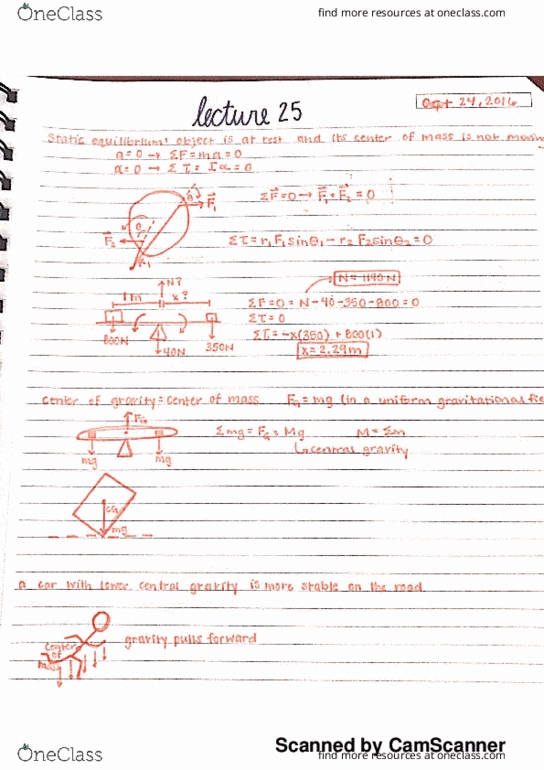 OneClass
find more resources at oneclass.com
lecture 25
Oct 24, 2016
Static equilibrium: object is at rest and its center of mass is not moving
a=0 → ΣF=ma=0
α=0 → Στ = Iα=0
F₁
F₂
θ
r₁
ΣF=0→ F₁+F₂=0
Στ=r₁F₁sinθ₁-r₂F₂sinθ₂=0
N?
1m
x?
800N
40N
350N
N=1190N
ΣF=0=N-40-350-800=0
Στ=0
Στ=-x(350)+800(1)
x=2.29m
center of gravity=center of mass
FG=mg (in a uniform gravitational fie
FG
mg
mg
Σmg=FG=Mg
M=Σm
↳central gravity
CG
mg
a car with lower central gravity is more stable on the road.
center
of
mass
gravity pulls forward
Scanned by CamScanner
OneClass
find more resources at oneclass.com